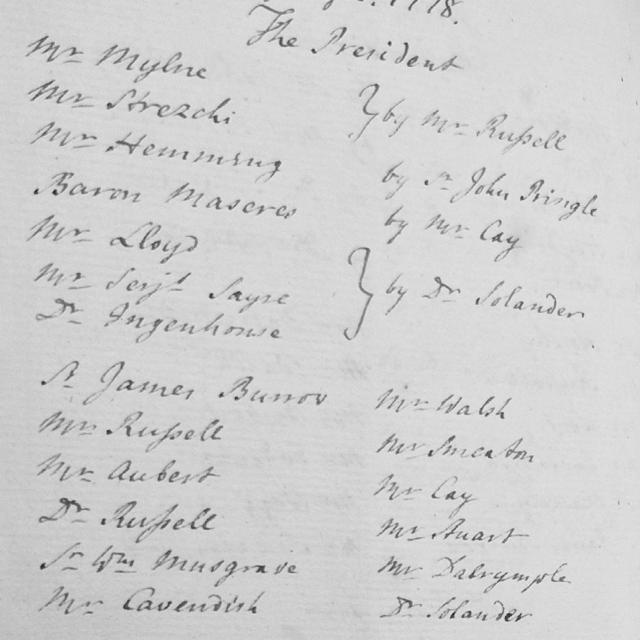 1778.
The President
Mr Mylne
Mr Strezchi } by Mr Russell
Mr Hemming by Sr John Pringle
Baron Maseres by Mr Cay
Mr Lloyd
Mr Serjt Sayre } by Dr Solander
Dr Ingenhouse
Sr James Burrow Mr Walsh
Mr Russell Mr Smeaton
Mr Aubert Mr Cay
Dr Russell Mr Stuart
Sr Wm Musgrave Mr Dalrymple
Mr Cavendish Dr Solander